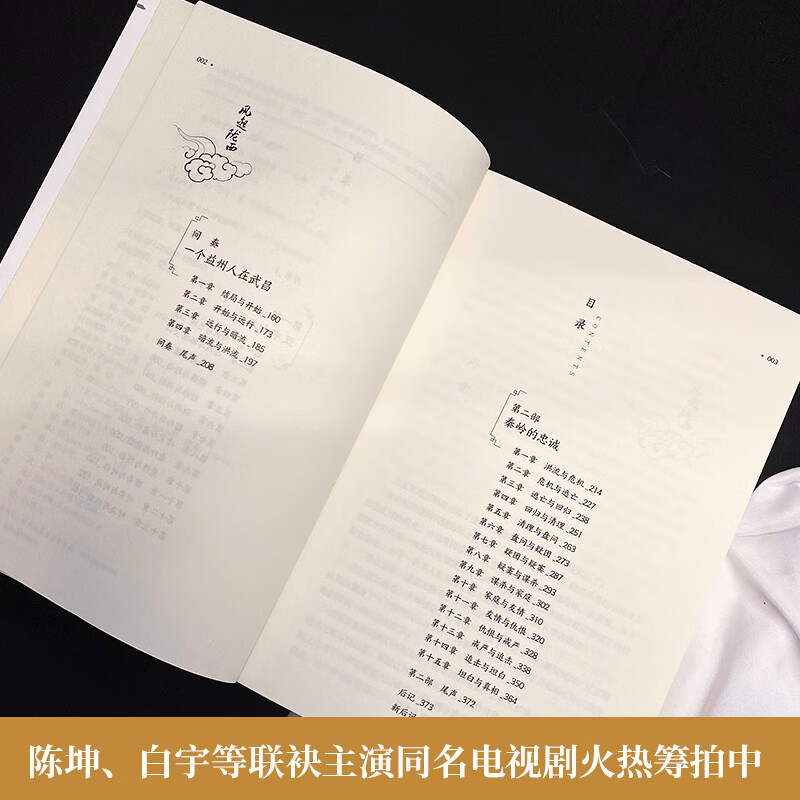 002 •
风起陇西
间奏
一个益州人在武昌
第一章 结局与开始_160
第二章 开始与远行_173
第三章 远行与暗流_185
第四章 暗流与洪流_197
间奏 尾声_208
• 003
目录
CONTENTS
第二部
秦岭的忠诚
第一章 洪流与危机_214
第二章 危机与逃亡_227
第三章 逃亡与回归_238
第四章 回归与清理_251
第五章 清理与盘问_263
第六章 盘问与疑团_273
第七章 疑团与疑窦_287
第八章 疑窦与谋杀_293
第九章 谋杀与家庭_302
第十章 家庭与友情_310
第十一章 友情与仇恨_320
第十二章 仇恨与戒严_328
第十三章 戒严与追击_338
第十四章 追击与坦白_350
第十五章 坦白与真相_364
第二部 尾声_372
后记_373
新后记
陈坤、白宇等联袂主演同名电视剧火热筹拍中